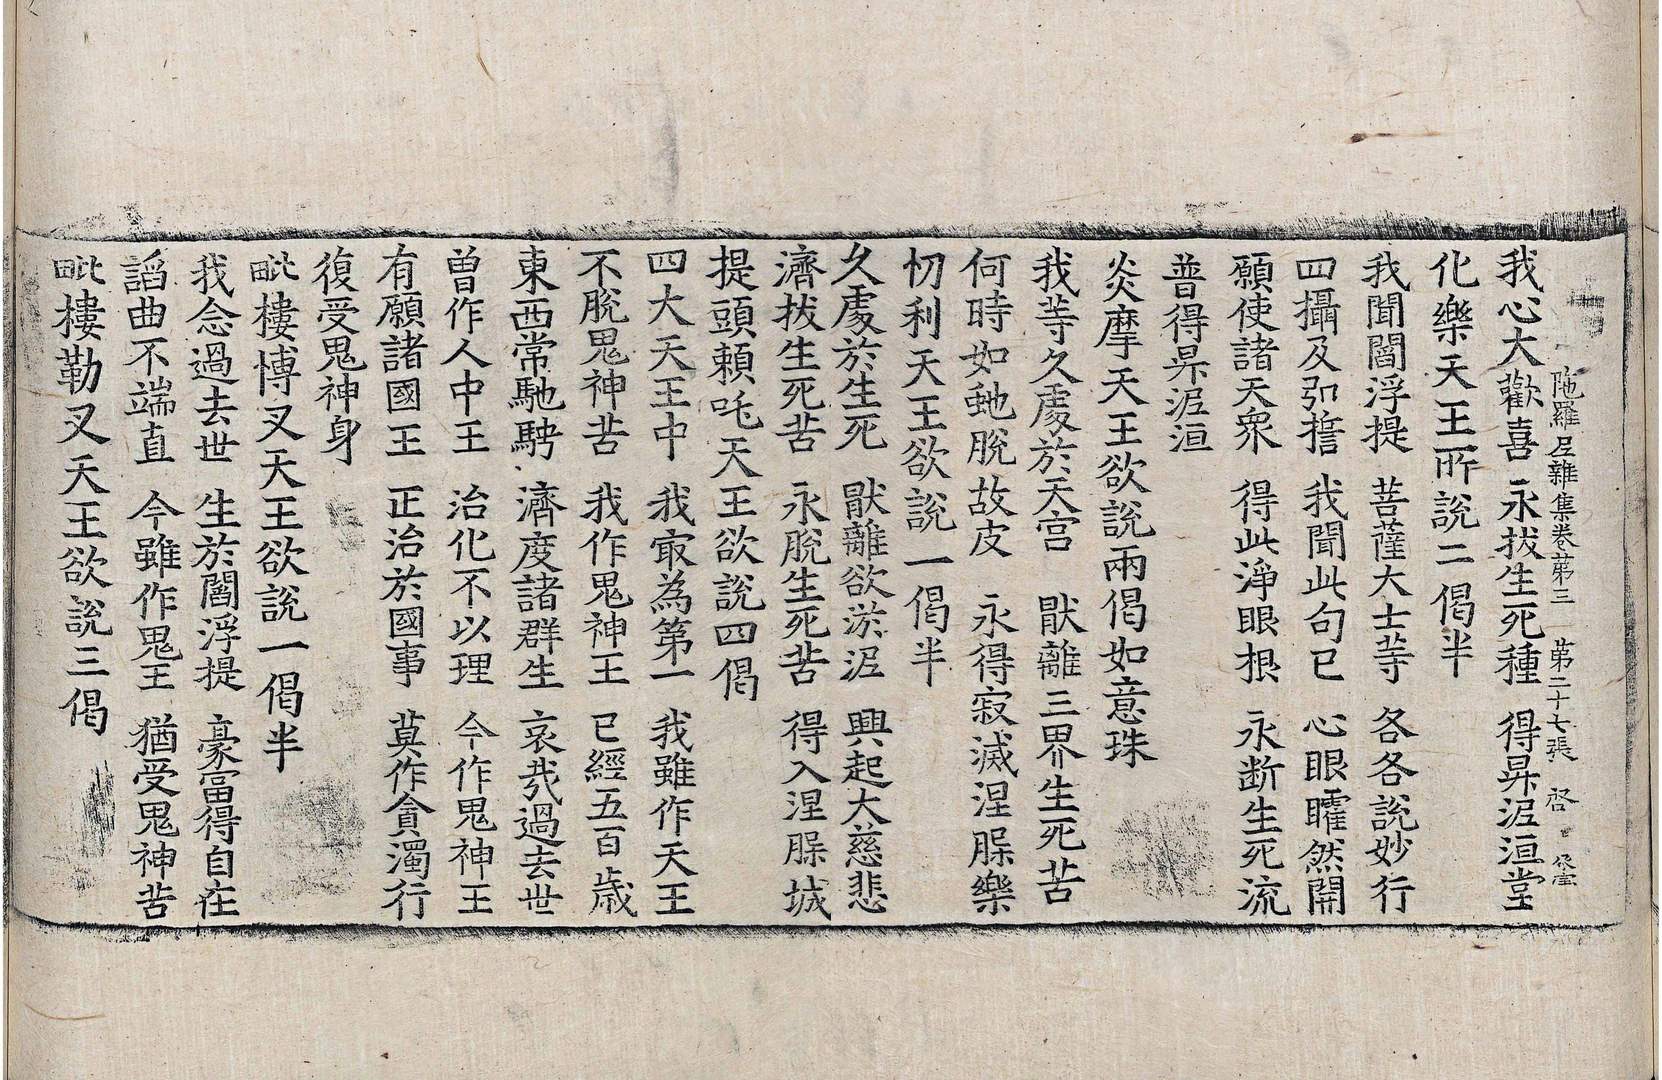 陁羅尼雜集卷第三 第二十七張 啓
我心大歡喜 永拔生死種 得昇泥洹堂
化樂天王所說二偈半
我聞閻浮提 菩薩大士等 各各說妙行
四攝及弘誓 我聞此句已 心眼㬢然開
願使諸天衆 得此淨眼根 永断生死流
普得昇泥洹
炎摩天王欲說兩偈如意珠
我等久處於天宮 猒離三界生死苦
何時如虵脫故皮 永得寂滅涅槃樂
忉利天王欲說一偈半
久處於生死 猒離欲淤泥 興起大慈悲
濟拔生死苦 永脫生死苦 得入涅槃城
提頭賴吒天王欲說四偈
四大天王中 我㝡為第一 我雖作天王
不脫鬼神苦 我作鬼神王 已經五百歲
東西常馳騁 濟度諸群生 哀㦲過去世
曽作人中王 治化不以理 今作鬼神王
有願諸國王 正治於國事 莫作貪濁行
復受鬼神身
毗樓博叉天王欲說一偈半
我念過去世 生於閻浮提 豪富得自在
謟曲不端直 今雖作鬼王 猶受鬼神苦
毗樓勒叉天王欲說三偈